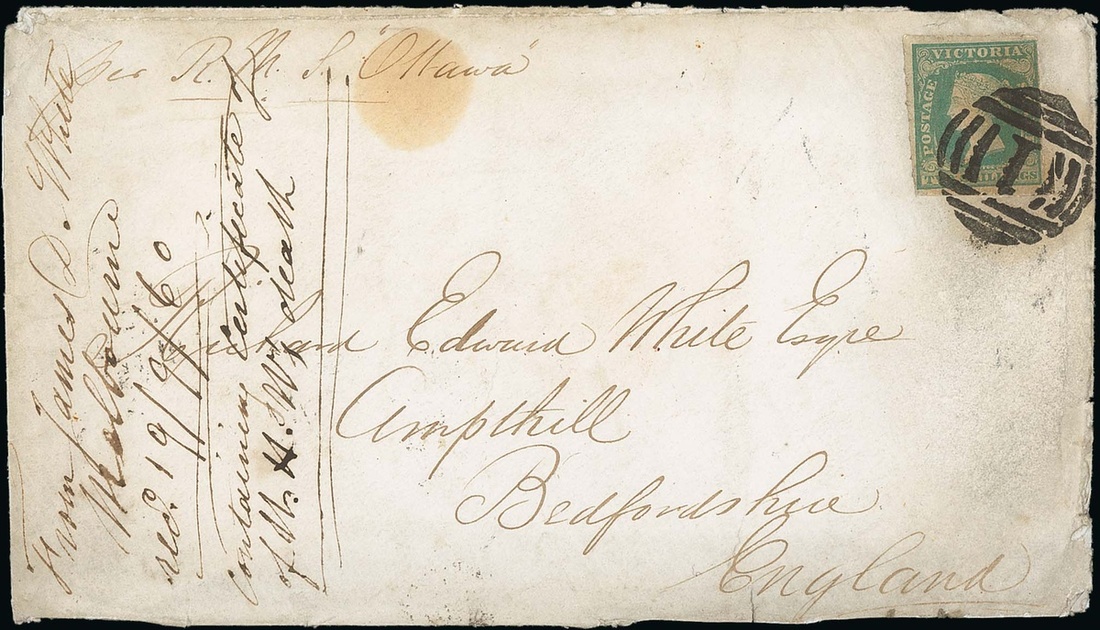 per R. M. S. "Ottawa"
VICTORIA
POSTAGE
TWO SHILLINGS
1
V
Edward White Esqre
Ampthill
Bedfordshire
England
From James D. White
Melbourne
recd. 19/9/60
Containing Certificate of
of W. H. W's death